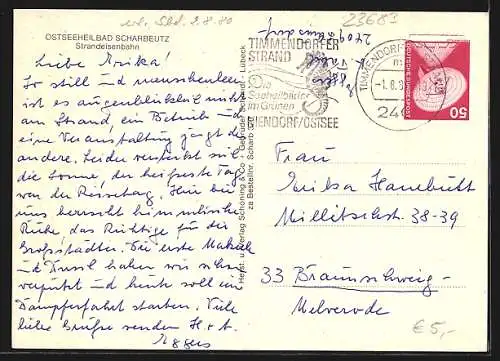 erh. Sbd. 2.8.80
23683
OSTSEEHEILBAD SCHARBEUTZ
Strandeisenbahn
Liebe Erika!
So still und menschenleer
ist es augenblicklich nicht
am Strand, ein Betrieb und
eine Veranstaltung jagt die
andere. Leider versteckt sich
die Sonne, der heißeste Tag
war der Reisetag. Hier bei
uns herrscht himmlische
Ruhe, das Richtige für die
Großstädter. Die erste Makrele
und Aal haben wir schon
verputzt und heute soll eine
Dampferfahrt starten. Viele
liebe Grüße senden H. + t.
Eggers
Herst. u. Verlag Schöning & Co · Gebrüder Schmidt · Lübeck
TIMMENDORFER
STRAND
Seeheilbäder
im Grünen
NIENDORF/OSTSEE
TIMMENDORFER
-1.8.8
240
DEUTSCHE BUNDESPOST
50
Frau
Erika Hambütt
Millitschstr. 38-39
33 Braunschweig-
Melverode
€ 5,-